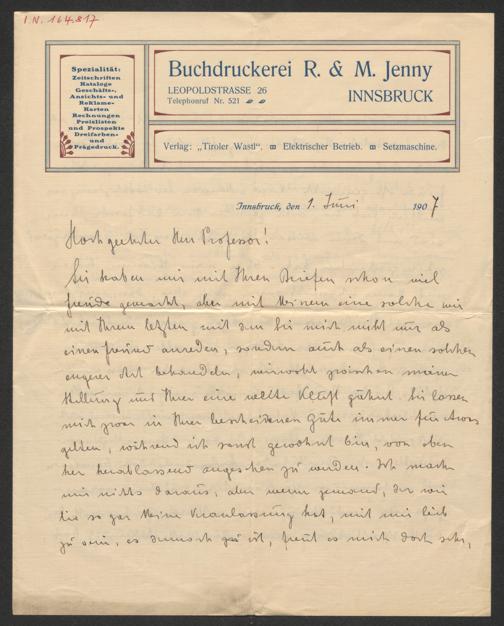 I.N. 164.817
Spezialität:
Zeitschriften
Kataloge
Geschäfts-,
Ansichts- und
Reklame-
Karten
Rechnungen
Preislisten
und Prospekte
Dreifarben-
und
Prägedruck.
Buchdruckerei R. & M. Jenny
LEOPOLDSTRASSE 26
Telephonruf Nr. 521
INNSBRUCK
Verlag: „Tiroler Wastl“. Elektrischer Betrieb. Setzmaschine.
Innsbruck, den 1. Juni 1907
Hochgeehrter Herr Professor!
Sie haben mir mit Ihren Briefen schon viel
Freude gemacht, aber mit keinem eine solche wie
mit Ihrem letzten, mit dem Sie mich nicht nur als
einen Freund anreden, sondern auch als einen solchen
engerer Art behandeln, wiewohl zwischen meiner
Stellung und Ihrer eine Kluft gähnt. Sie lassen
mich zwar in Ihrer bescheidenen Güte immer für etwas
gelten, während ich sonst gewohnt bin, von oben
her herablassend angesehen zu werden. Ich mache
mir nichts daraus, aber wenn jemand, der wie
Sie so gar keine Veranlassung hat, mit mir lieb
zu sein, es dennoch ist, freut es mich doch sehr,